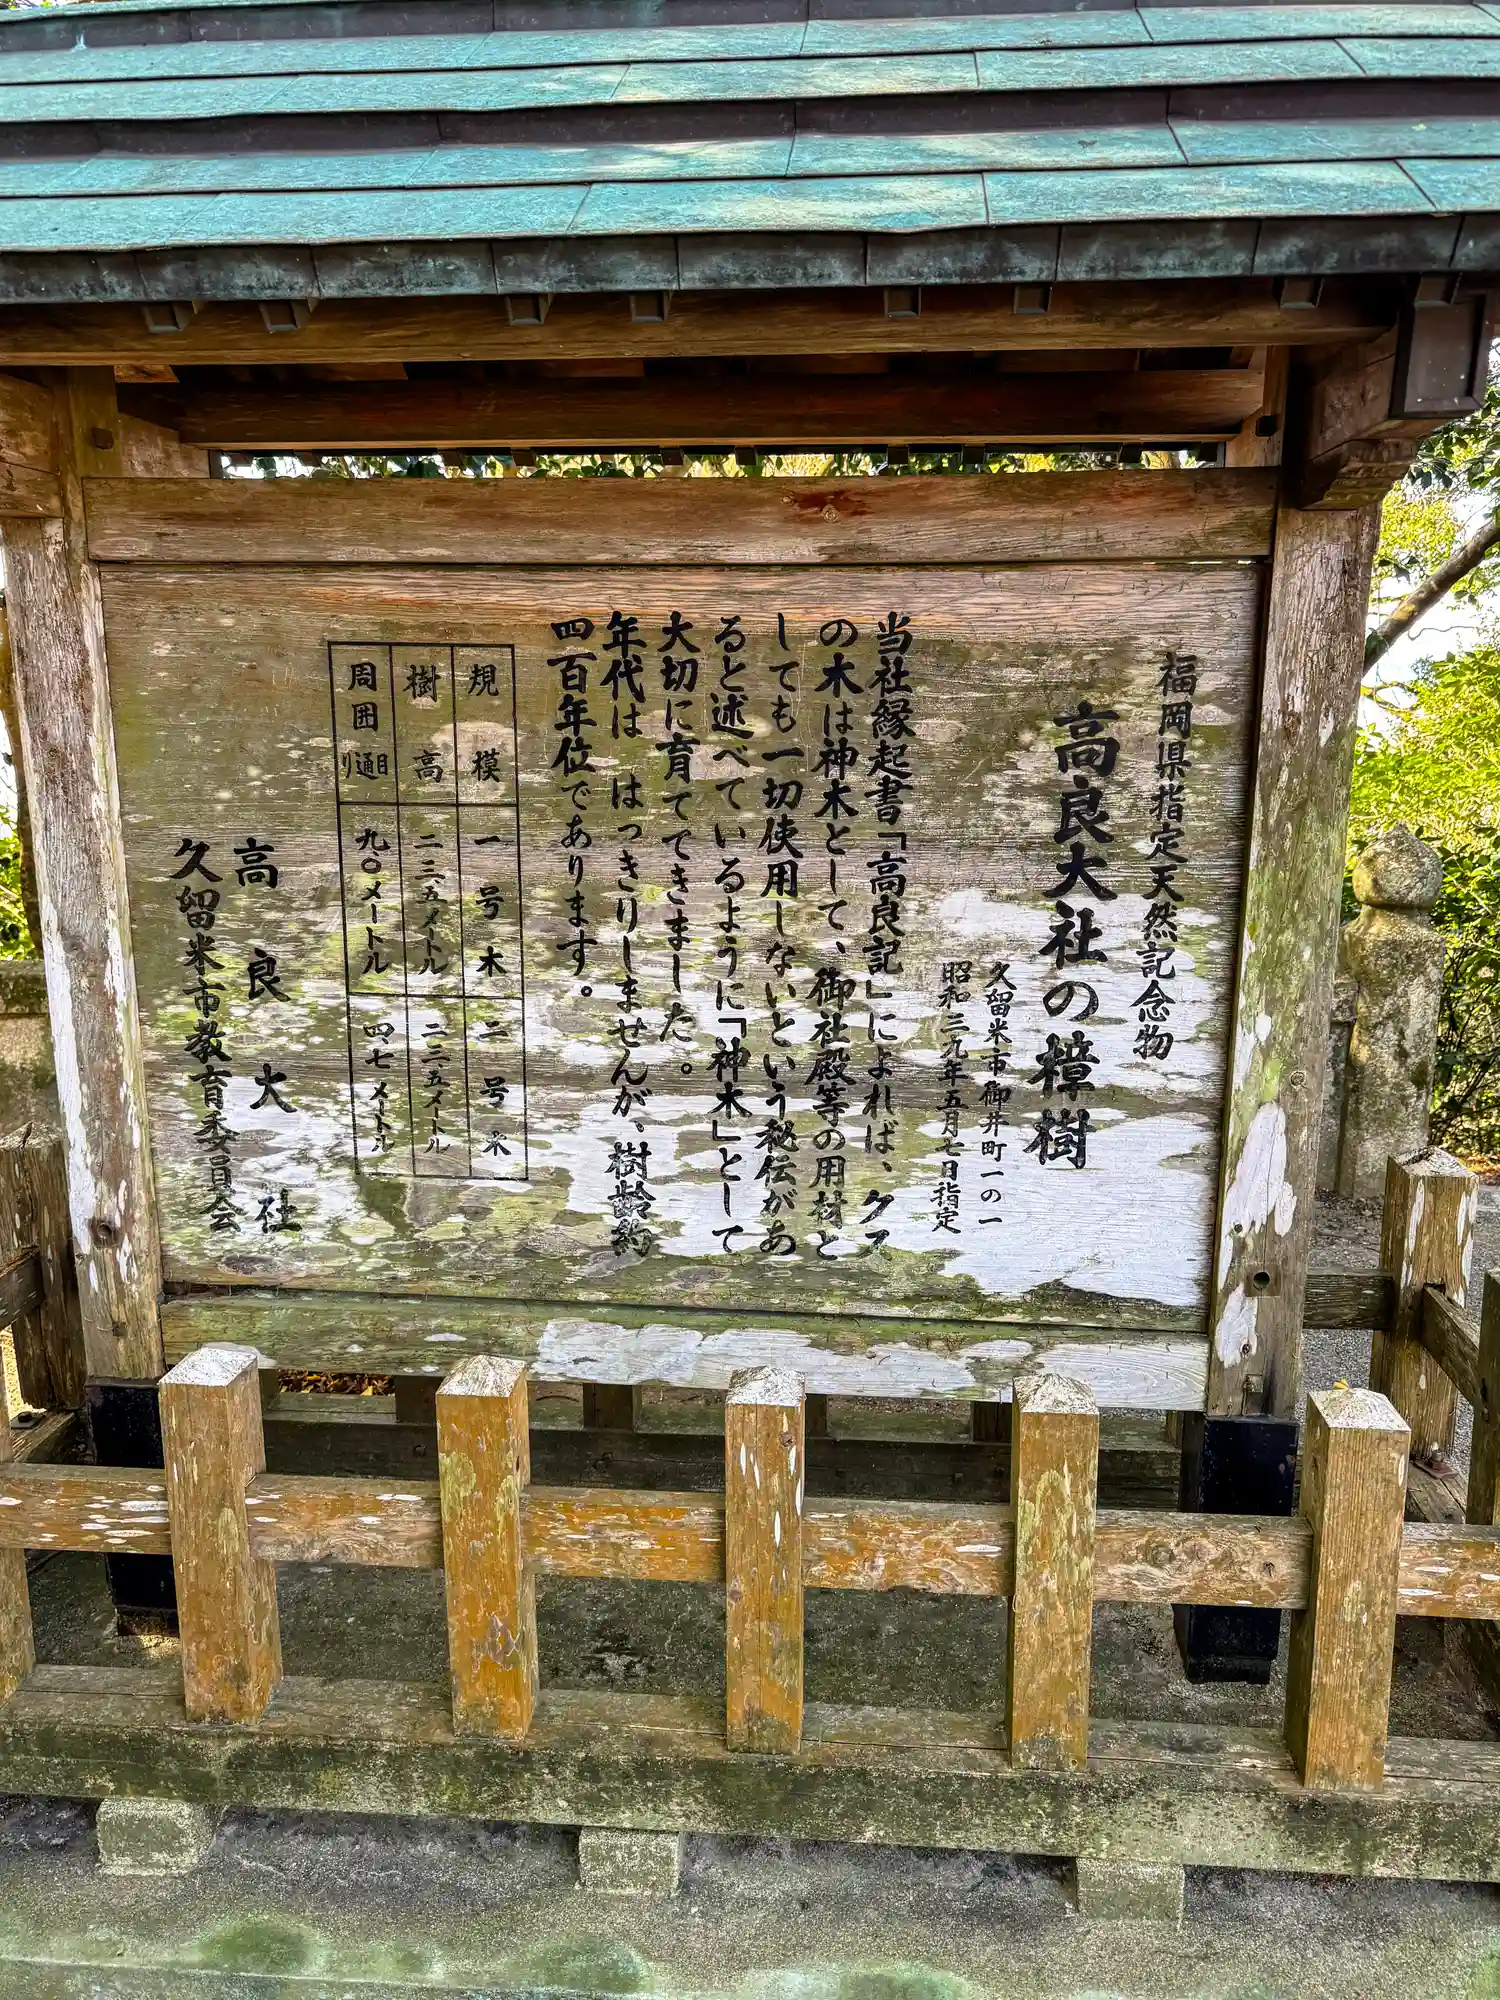 福岡県指定天然記念物
高良大社の樟樹
久留米市御井町一の一
昭和三九年五月七日指定
当社縁起書「高良記」によれば、クス
の木は神木として、御社殿等の用材と
しても一切使用しないという秘伝があ
ると述べているように「神木」として
大切に育ててきました。
年代は はっきりしませんが、樹齢約
四百年位であります。
規模 一号木 二号木
樹高 二三、五メートル 二二、五メートル
周囲 目通り 九、〇メートル 四、七メートル
高良大社
久留米市教育委員会